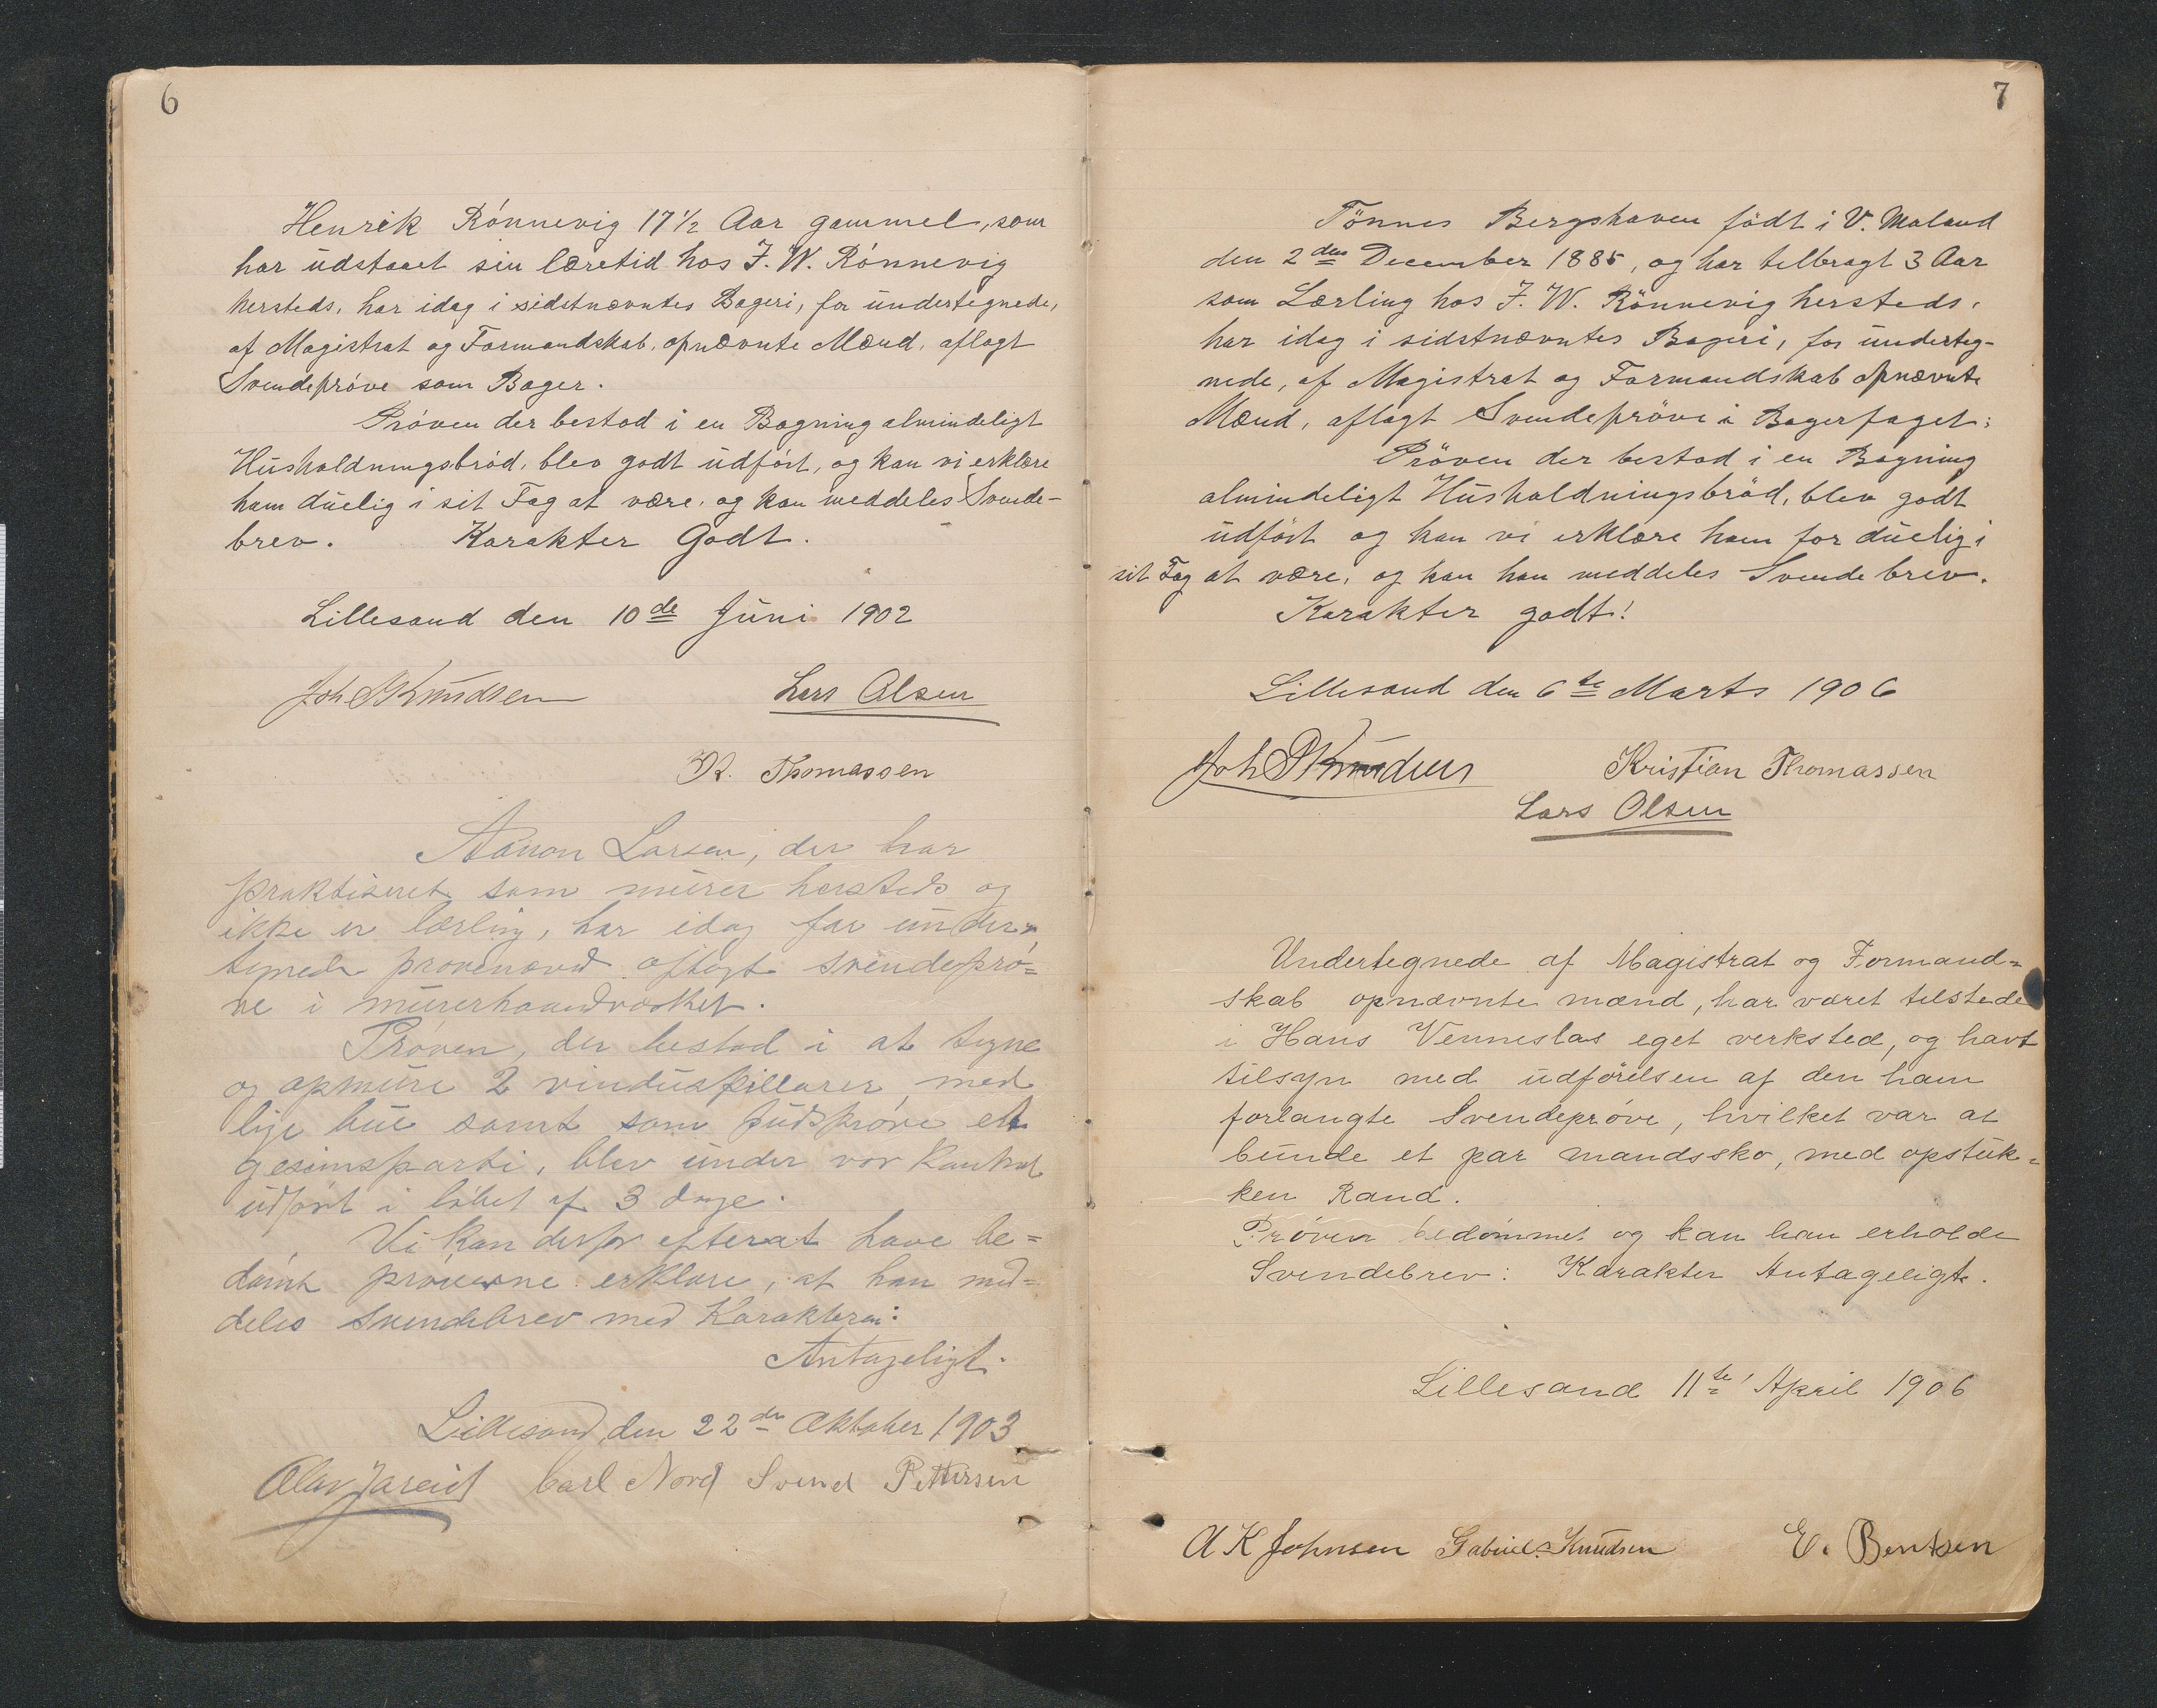 6
Henrik Rónnevig 17 1/2 Aar gammel, som
har udstaaet sin læretid hos J. W. Rónnevig
hersteds, har idag i sidstnævntes Bageri, for undertegnede,
af Magistrat og Formandskab, opnævnte Mænd, aflagt
Svendepróve som Bager.
Próven der bestod i en Bagning almindeligt
Husholdningsbród, blev godt udfórt, og kan vi erklære
ham duelig i sit Fag at være, og kan meddeles Svende-
brev. Karakter Godt.
Lillesand den 10de Juni 1902
Joh Knudsen Lars Olsen
K. Thomassen
Aanon Larsen, der har
praktiseret som murer hersteds og
ikke er lærling, har idag for under-
tegnede prøvenævnd aflagt svendeprø=
ve i murerhaandværket.
Prøven, der bestod i at tegne
og opmure 2 vinduspillarer, med
lige bue samt som pudsprøve et
gesimsparti, blev under vor kontrol
udført i løbet af 3 dage.
Vi kan derfor efterat have be=
dømt prøverne erklære, at han med=
deles svendebrev med Karakteren:
Antageligt.
Lillesand, den 22de Oktober 1903
Olav Jareid Carl Nord Svend Pettersen
7
Tönnes Bergshaven födt i V. Moland
den 2den December 1885, og har tilbragt 3 Aar
som Lærling hos J. W. Rönnevig hersteds,
har idag i sidstnævntes Bageri, for underteg-
nede, af Magistrat og Formandskab opnævnte
Mænd, aflagt Svendepröve i Bagerfaget:
Pröven der bestod i en Bagning
almindeligt Husholdningsbröd, blev godt
udfört og kan vi erklære ham for duelig i
sit Fag at være, og kan han meddeles Svendebrev.
Karakter godt!
Lillesand den 6te Marts 1906
Joh Knudsen Kristian Thomassen
Lars Olsen
Undertegnede af Magistrat og Formand=
skab opnævnte mænd, har været tilstede
i Hans Venneslas eget verksted, og havt
tilsyn med udførelsen af den ham
forlangte Svendeprøve, hvilket var at
bunde et par mandssko, med opstuk=
ken Rand.
Prøven bedømmet og kan han erholde
Svendebrev: Karakter Antageligt.
Lillesand 11te April 1906
A K Johnsen Gabriel Knudsen E. Bentsen